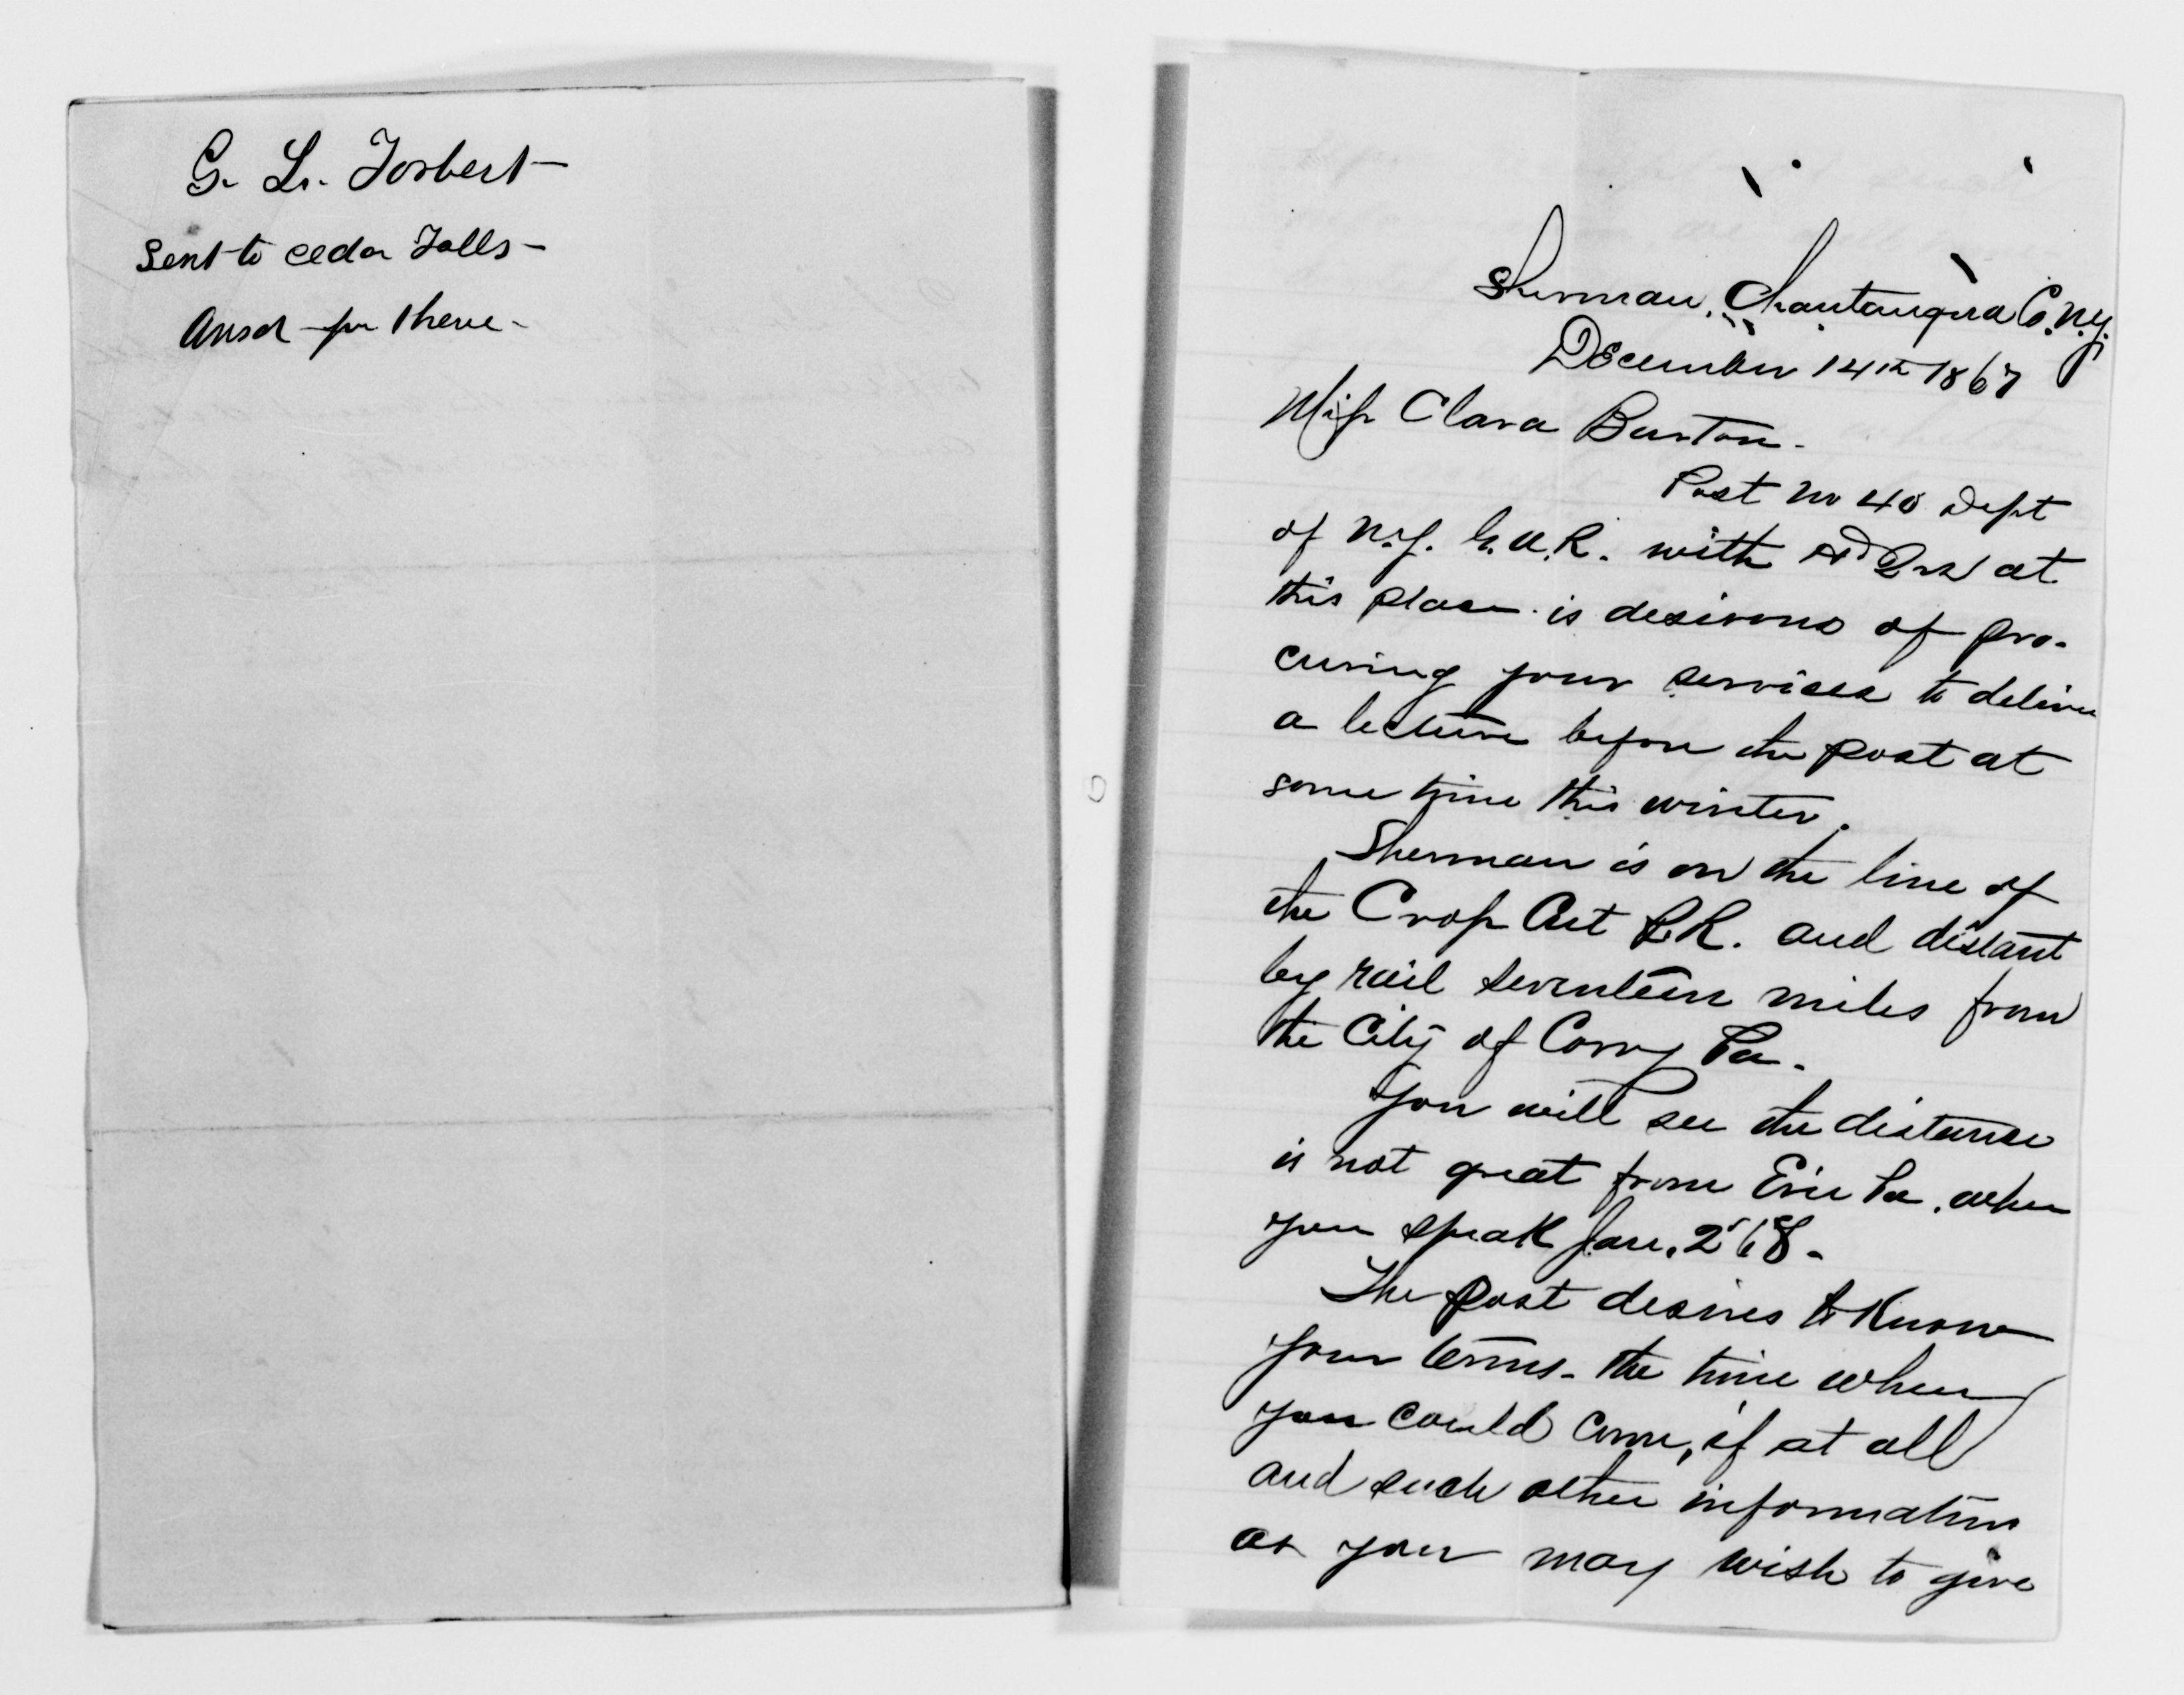 G. L. Torbert
Sent to Cedar Falls -
Ansd - fr there -
Sherman, Chautauqua Co. N.Y.
December 14th 1867
Miss Clara Barton -
Post No 40 Dept
of N.Y. G.A.R. with Hd Qrs at
this place is desirous of pro-
curing your services to deliver
a lecture before the post at
some time this winter.
Sherman is on the line of
the Cross Cut R.R. and distant
by rail seventeen miles from
the City of Corry Pa.
You will see the distance
is not great from Erie Pa. when
you speak Jan. 2d 68 -
The post desires to know
your terms - the time when
you could come, if at all
and such other information
as you may wish to give